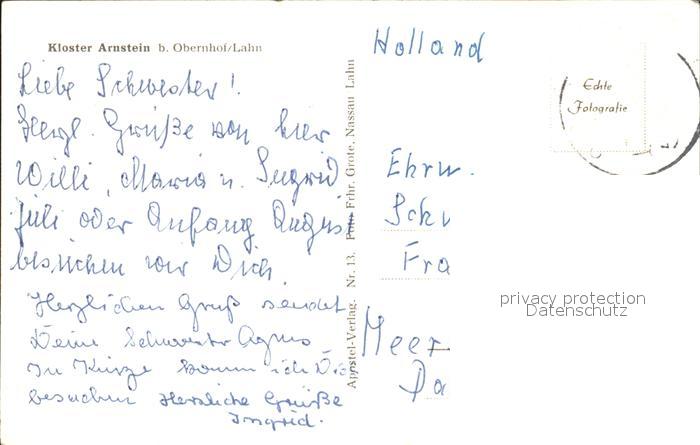 Kloster Arnstein b. Obernhof/Lahn
Liebe Schwester!
Herzl. Grüße von hier
Willi, Maria u. Ingrid
Juli oder Anfang August
besuchen wir Dich.
Herzlichen Gruß sendet
Deine Schwester Agnes
In Kürze komm ich Dich
besuchen Herzliche Grüße
Ingrid.
Apostel-Verlag. Nr. 13. Foto Frhr. Grote, Nassau Lahn
Holland
Echte
Fotografie
Ehrw.
Schw
Fra
Meer
Da
privacy protection
Datenschutz